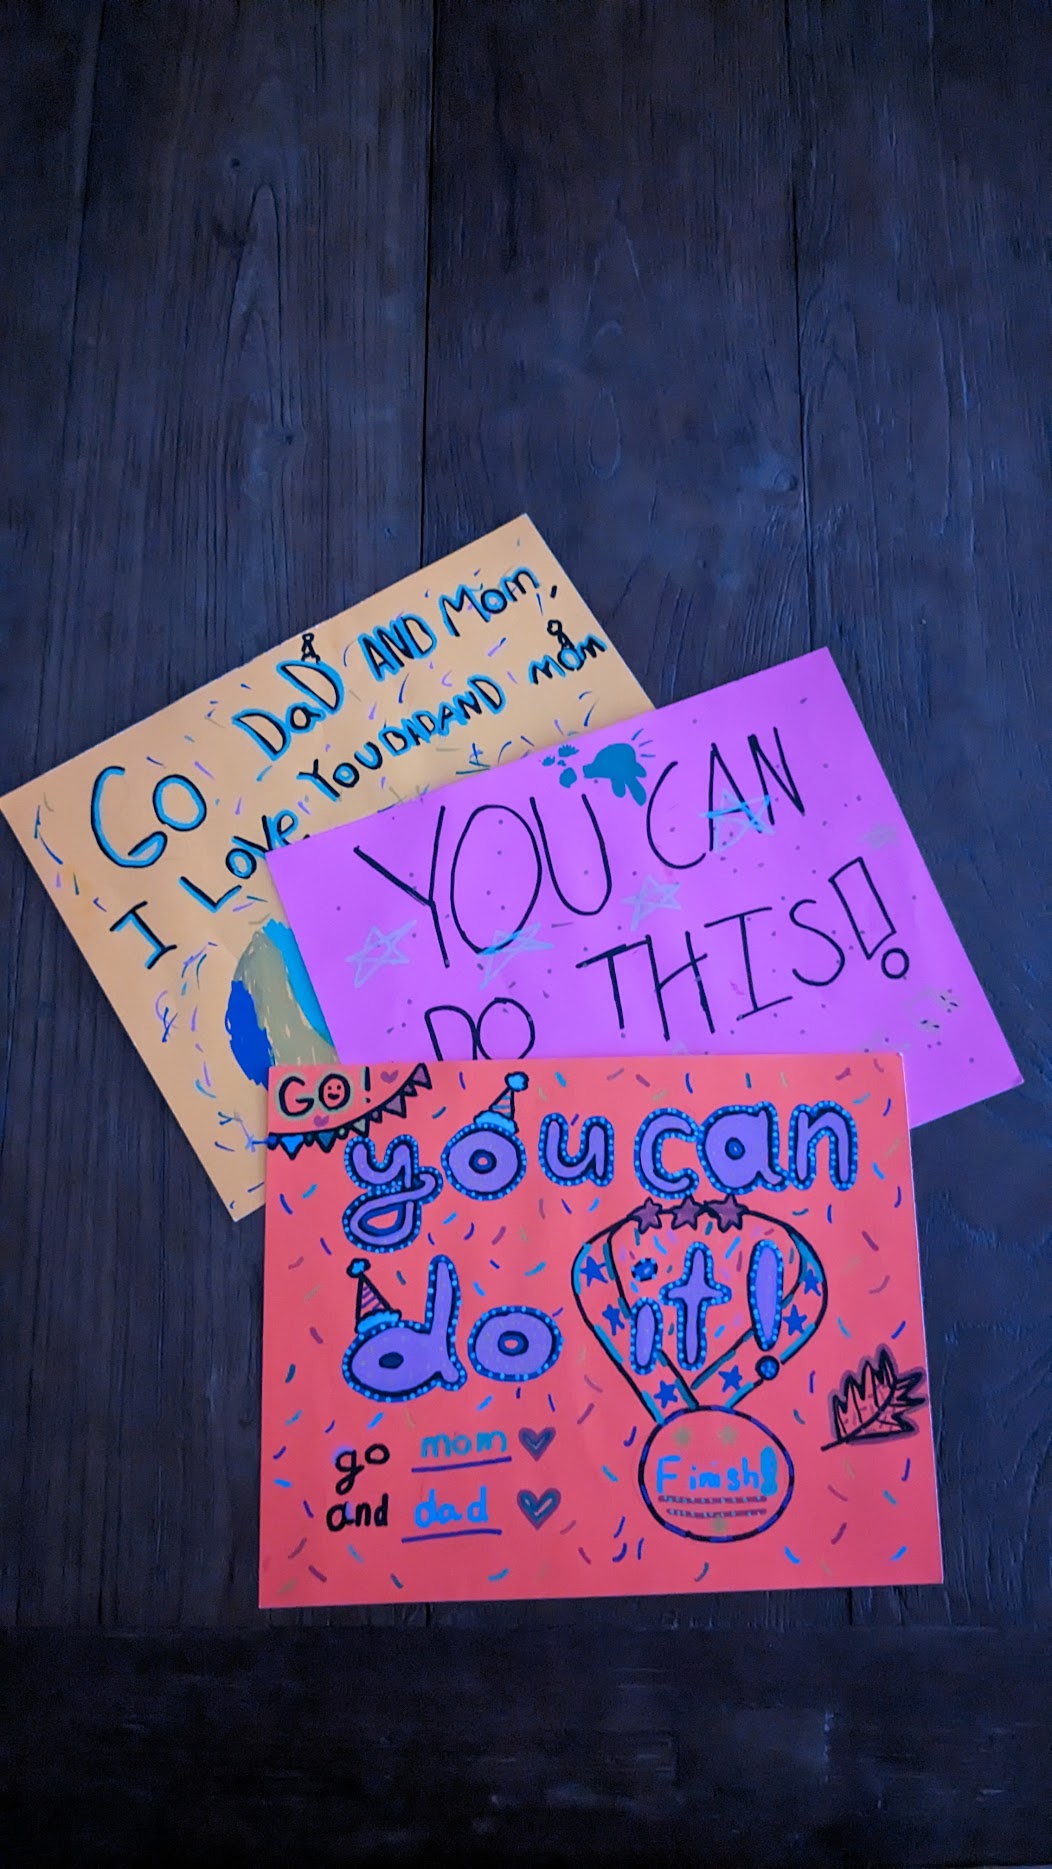 GO DaD AND Mom,
I LOVe YOU DAD AND mom
YOU CAN
DO THIS!
GO!
you can
do it!
go mom
and dad
Finish!